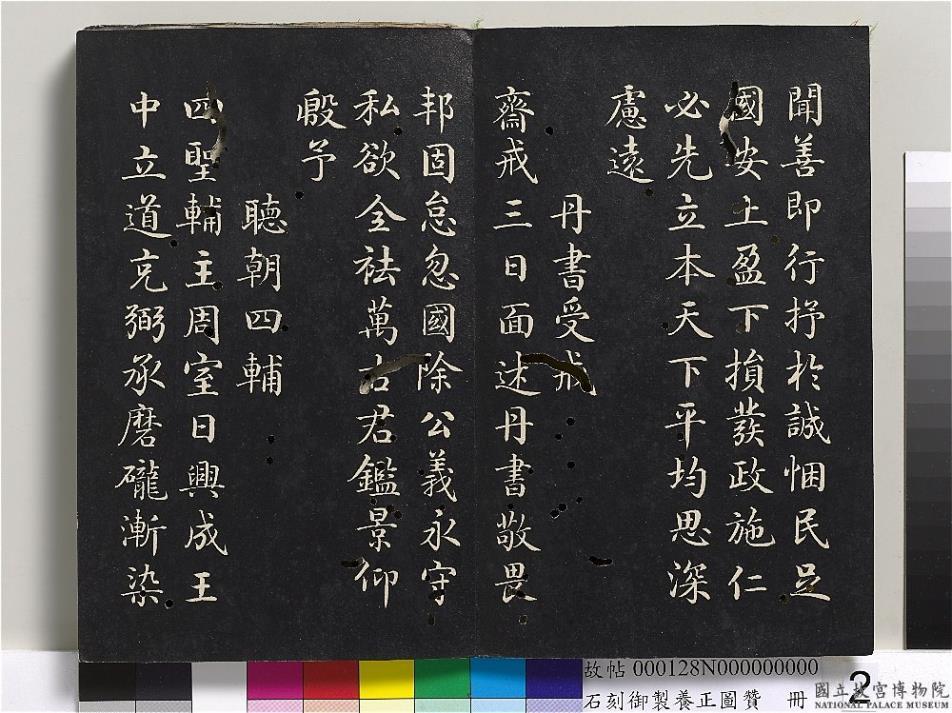 聞善即行抒於誠悃民足
國安土盈下損發政施仁
必先立本天下平均思深
慮遠
丹書受戒
齋戒三日面述丹書敬畏
邦固怠忽國除公義永守
私欲全祛萬古君鑑景仰
殷予
聽朝四輔
四聖輔主周室日興成王
中立道克弼承磨礲漸染
故帖 000128N000000000
石刻御製養正圖贊 冊 2
國立故宮博物院
NATIONAL PALACE MUSEUM